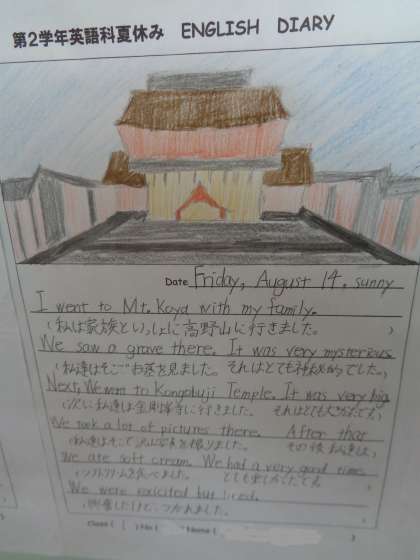 第2学年英語科夏休み ENGLISH DIARY
Date Friday, August 14. sunny
I went to Mt. Koya with my family.
(私は家族といっしょに高野山に行きました。 )
We saw a grave there. It was very mysterious.
(私達はそこでお墓を見ました。 それはとても神秘的でした。)
Next, We went to Kongobuji Temple. It was very big
(次に私達は金剛峯寺に行きました。 それはとても大きかったです)
We took a lot of pictures there. After that
(私達はそこで沢山写真を撮りました。 その後私達は)
we ate soft cream. We had a very good time.
(ソフトクリームを食べました。 とても楽しかったです)
We were exicited but tired.
(興奮したけど、つかれました。 )
Class ( ) No ( ) Name (